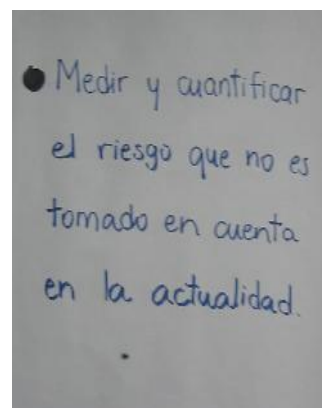 ● Medir y cuantificar
el riesgo que no es
tomado en cuenta
en la actualidad.